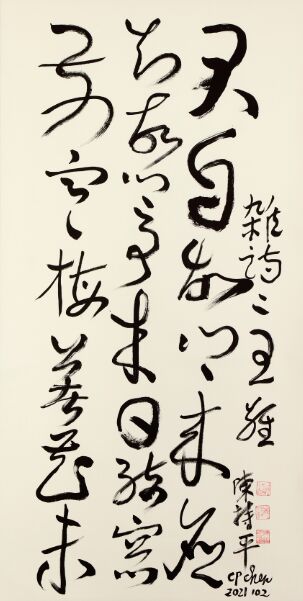 君自故鄉來應
知故鄉事來日綺窗
前寒梅著花未
雜詩二王維
陳持平
CP Chen
2021.10.2